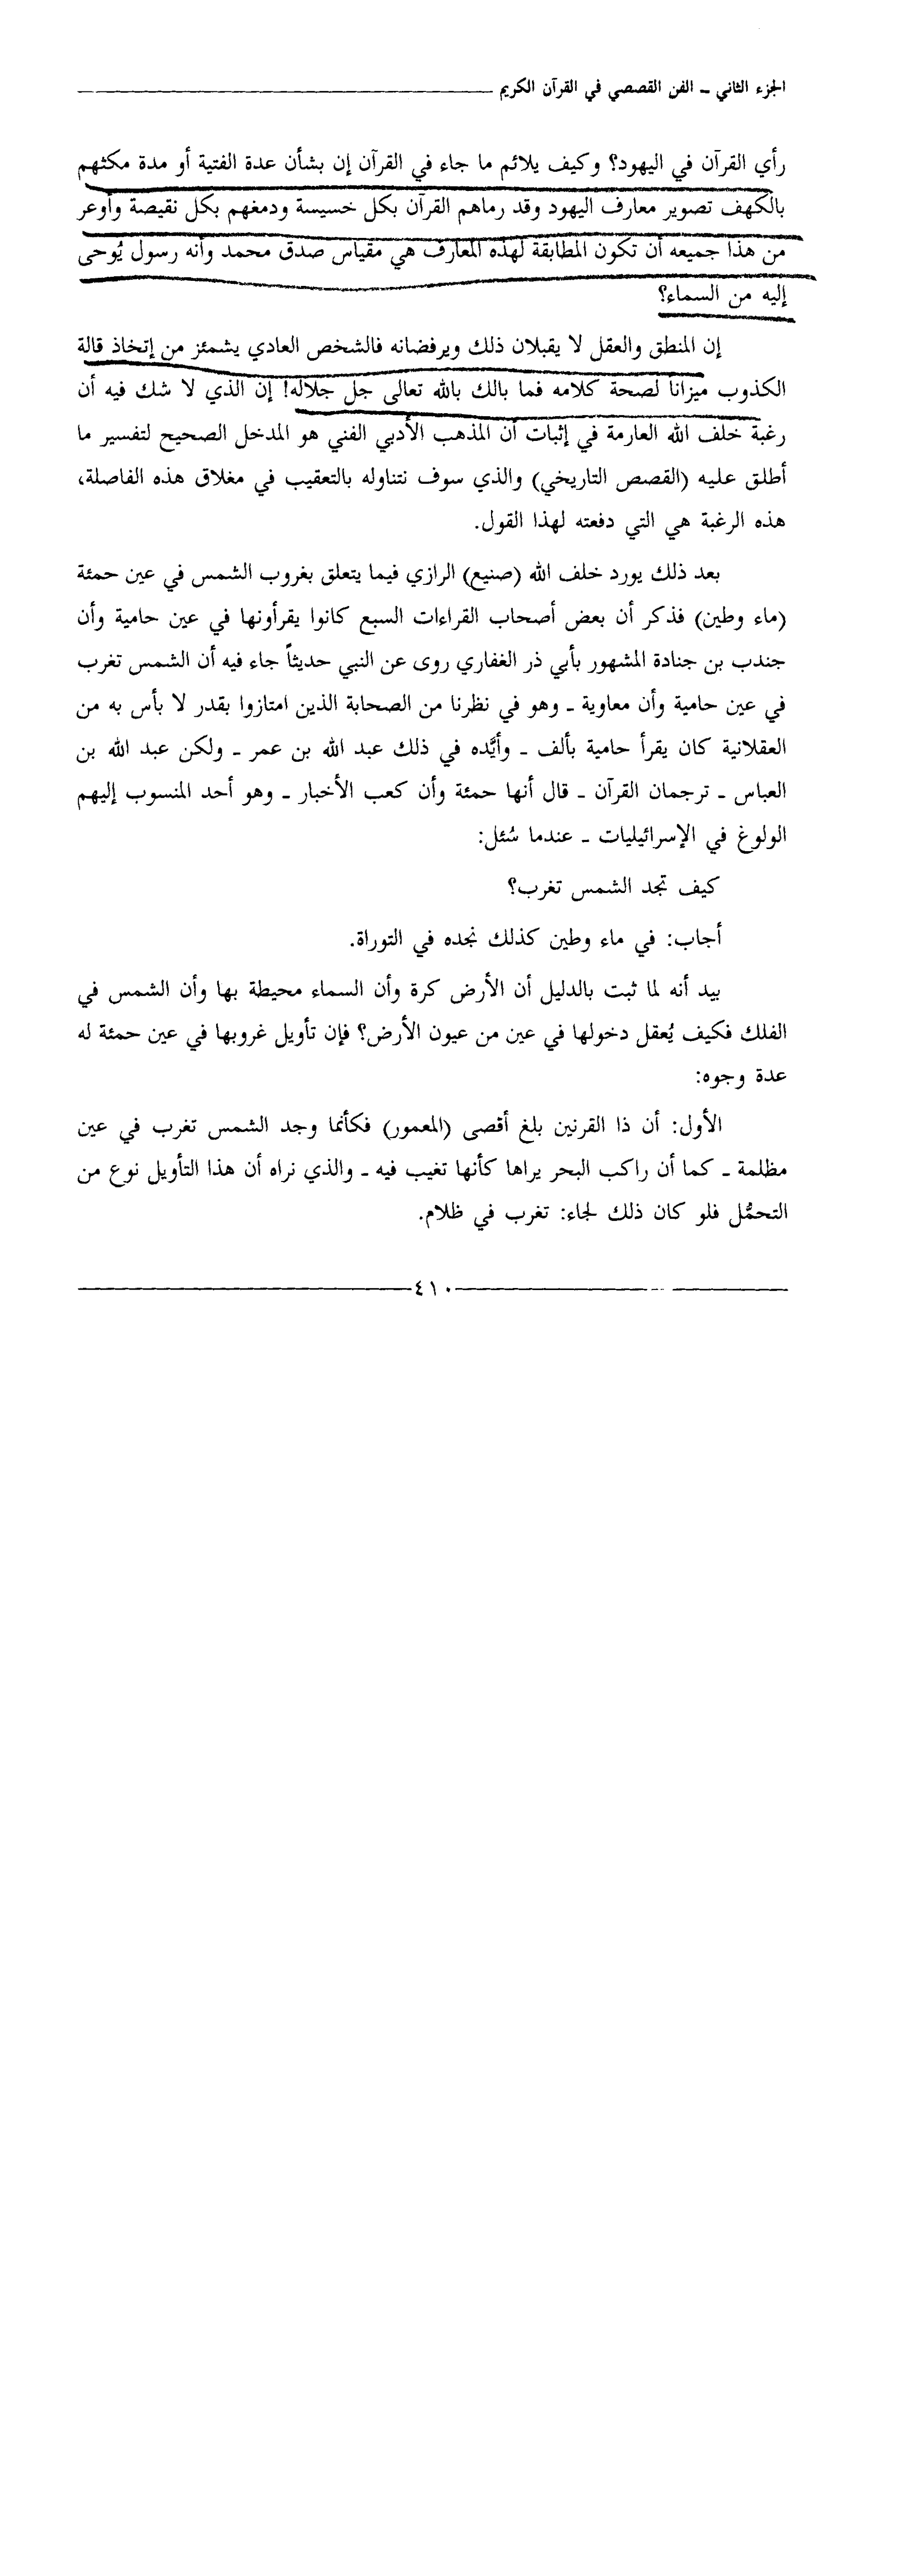 الجزء الثاني ـ الفن القصصي في القرآن الكريم
رأي القرآن في اليهود؟ وكيف يلائم ما جاء في القرآن إن بشأن عدة الفتية أو مدة مكثهم
بالكهف تصوير معارف اليهود وقد رماهم القرآن بكل خسيسة ودمغهم بكل نقيصة وأوعر
من هذا جميعه أن تكون المطابقة لهذه المعارف هي مقياس صدق محمد وأنه رسول يُوحى
إليه من السماء؟
إن المنطق والعقل لا يقبلان ذلك ويرفضانه فالشخص العادي يشمئز من إتخاذ قالة
الكذوب ميزاناً لصحة كلامه فما بالك بالله تعالى جل جلاله! إن الذي لا شك فيه أن
رغبة خلف الله العارمة في إثبات أن المذهب الأدبي الفني هو المدخل الصحيح لتفسير ما
أطلق عليه (القصص التاريخي) والذي سوف نتناوله بالتعقيب في مغلاق هذه الفاصلة،
هذه الرغبة هي التي دفعته لهذا القول.
بعد ذلك يورد خلف الله (صنيع) الرازي فيما يتعلق بغروب الشمس في عين حمئة
(ماء وطين) فذكر أن بعض أصحاب القراءات السبع كانوا يقرأونها في عين حامية وأن
جندب بن جنادة المشهور بأبي ذر الغفاري روى عن النبي حديثاً جاء فيه أن الشمس تغرب
في عين حامية وأن معاوية ـ وهو في نظرنا من الصحابة الذين امتازوا بقدر لا بأس به من
العقلانية كان يقرأ حامية بألف ـ وأيَّده في ذلك عبد الله بن عمر ـ ولكن عبد الله بن
العباس ـ ترجمان القرآن ـ قال أنها حمئة وأن كعب الأخبار ـ وهو أحد المنسوب إليهم
الولوغ في الإسرائيليات ـ عندما سُئل:
كيف تجد الشمس تغرب؟
أجاب: في ماء وطين كذلك نجده في التوراة.
بيد أنه لما ثبت بالدليل أن الأرض كرة وأن السماء محيطة بها وأن الشمس في
الفلك فكيف يُعقل دخولها في عين من عيون الأرض؟ فإن تأويل غروبها في عين حمئة له
عدة وجوه:
الأول: أن ذا القرنين بلغ أقصى (المعمور) فكأنما وجد الشمس تغرب في عين
مظلمة ـ كما أن راكب البحر يراها كأنها تغيب فيه ـ والذي نراه أن هذا التأويل نوع من
التحمُّل فلو كان ذلك لجاء: تغرب في ظلام.
٤١٠